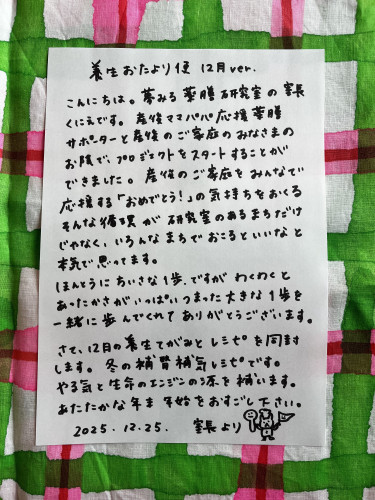 養生おたより便 12月ver.
こんにちは。夢みる薬膳研究室の室長
くにえです。産後ママパパ応援薬膳
サポーターと産後のご家庭のみなさまの
お陰で、プロジェクトをスタートすることが
できました。産後のご家庭をみんなで
応援する「おめでとう!」の気持ちをおくる
そんな循環が研究室のあるまちだけ
じゃなく、いろんなまちでおこるといいなと
本気で思ってます。
ほんとうにちいさな1歩、ですがわくわくと
あったかさがいっぱいつまった大きな1歩を
一緒に歩んでくれてありがとうございます。
さて、12月の養生てがみとレシピを同封
します。冬の補腎補気レシピです。
やる気と生命のエンジンの源を補います。
あたたかな年末年始をおすごし下さい。
2025.12.25. 室長より